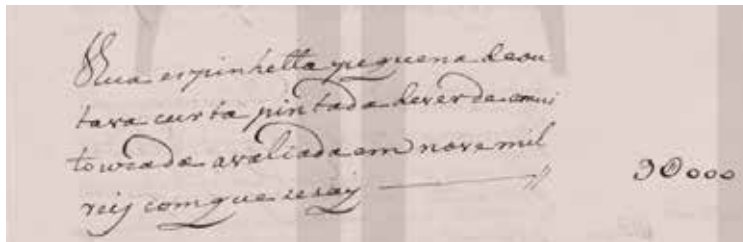 Hua espinhetta piquena de ou
tava curta pintada de verde e mui
to uzada avaliada em nove mil
reis com que se say 9000